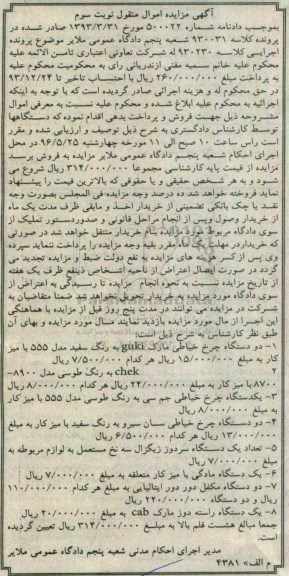 آگهی مزایده اموال منقول نوبت سوم
بموجب دادنامه شماره ۵۰۰۰۲۲ مورخ ۱۳۹۳/۳/۳۱ صادر شده در
پرونده کلاسه ۹۳۰۰۳۱ شعبه پنجم دادگاه عمومی ملایر موضوع پرونده
اجرایی کلاسه ۹۳۰۲۳۰ له شرکت تعاونی اعتباری ثامن الائمه علیه
محکوم علیه خانم سمیه مفنی ازندریانی رای به محکومیت محکوم علیه
به پرداخت مبلغ ۲۶۰/۰۰۰/۰۰۰ ریال با احتساب تاخیر تا ۹۳/۱۲/۲۴
در حق محکوم له و هزینه اجرائی صادر گردیده است که با توجه به اینکه
اجرائیه به محکوم علیه ابلاغ شده و محکوم علیه نسبت به معرفی اموال
مشروحه ذیل جهت فروش و پرداخت بدهی اقدام نموده که دستگاهها
توسط کارشناس دادگستری به شرح ذیل توصیف و ارزیابی شده و مقرر
است راس ساعت ۱۰ صبح الی ۱۱ مورخه چهارشنبه ۹۶/۵/۲۵ در محل
اجرای احکام شعبه پنجم دادگاه عمومی ملایر مزایده به فروش برسد
مزایده از قیمت پایه کارشناسی مجموعا ۳۱۴/۰۰۰/۰۰۰ ریال شروع می
شود و به هر شخص حقیقی و یا حقوقی که بالاترین قیمت را پیشنهاد
نماید فروخته خواهد شد ده درصد وجه مزایده فی المجلس بصورت وجه
نقد یا چک بانکی تضمینی از خریدار اخذ و مابقی ظرف مدت یک ماه
از خریدار وصول وپس از انجام مراحل قانونی و صدوردستور تملیک از
سوی دادگاه مربوط مورد مزایده بنام خریدار منتقل خواهد شد در صورتی
که خریداردر مهلت یک ماه مقرر بقیه وجه مزایده را پرداخت ننماید سپرده
وی پس از کسر هزینه های مزایده به نفع دولت ضبط و مزایده تجدید می
گردد در صورت ایصال اعتراض از ناحیه اشخاص ذینفع ظرف یک هفته
از تاریخ مزایده نسبت به نحوه انجام مزایده تا رسیدگی به اعتراض از
سوی دادگاه مورد مزایده به خریدار تحویل نخواهد شد ضمنا متقاضیان به
شرکت در مزایده می توانند در مدت پنج روز قبل از مزایده با هماهنگی
این اجرا از مال مورد مزایده بازدید نمایند مال مورد مزایده و بهای آن
طبق نظر کارشناس به شرح ذیل است:
۱- دو دستگاه چرخ خیاطی مارک guki به رنگ سفید مدل 555 با میز
کار به مبلغ ۱۵/۰۰۰/۰۰۰ ریال هر کدام ۷/۵۰۰/۰۰۰ ریال
۲ chek به رنگ طوسی مدل ۸۹۰۰-
۸۷۰۰ با میز کار به مبلغ ۲۴/۰۰۰/۰۰۰ ریال هر کدام ۸/۰۰۰/۰۰۰ ریال
۳- یکدستگاه چرخ خیاطی جم سی به رنگ طوسی مدل 555 با میز کار
به مبلغ ۸/۰۰۰/۰۰۰ ریال
۴- دو دستگاه چرخ خیاطی سان سیرو به رنگ سفید با میز کار به مبلغ
۱۳/۰۰۰/۰۰۰ ریال هر کدام ۶/۵۰۰/۰۰۰ ریال
۵- تعداد یک دستگاه سردوز زیگزال سه نخ مستعمل به لوازم مربوطه به
مبلغ ۷/۰۰۰/۰۰۰ ریال
۶- یک دستگاه مادگی با میز کار متعلقه به مبلغ ۷/۰۰۰/۰۰۰ ریال
۷- دو دستگاه مکفل دور دوز ایتالیایی به مبلغ هر کدام ۱۱۰/۰۰۰/۰۰۰
ریال و دو دستگاه ۲۲۰/۰۰۰/۰۰۰ ریال
۸- یک دستگاه راسته دوز مارک cab به مبلغ ۲۰/۰۰۰/۰۰۰ ریال
جمعا مبالغ هشت قلم بالا به مبلغ ۳۱۴/۰۰۰/۰۰۰ ریال تعیین گردیده
است.
مدیر اجرای احکام مدنی شعبه پنجم دادگاه عمومی ملایر
م الف» ۴۳۸۱